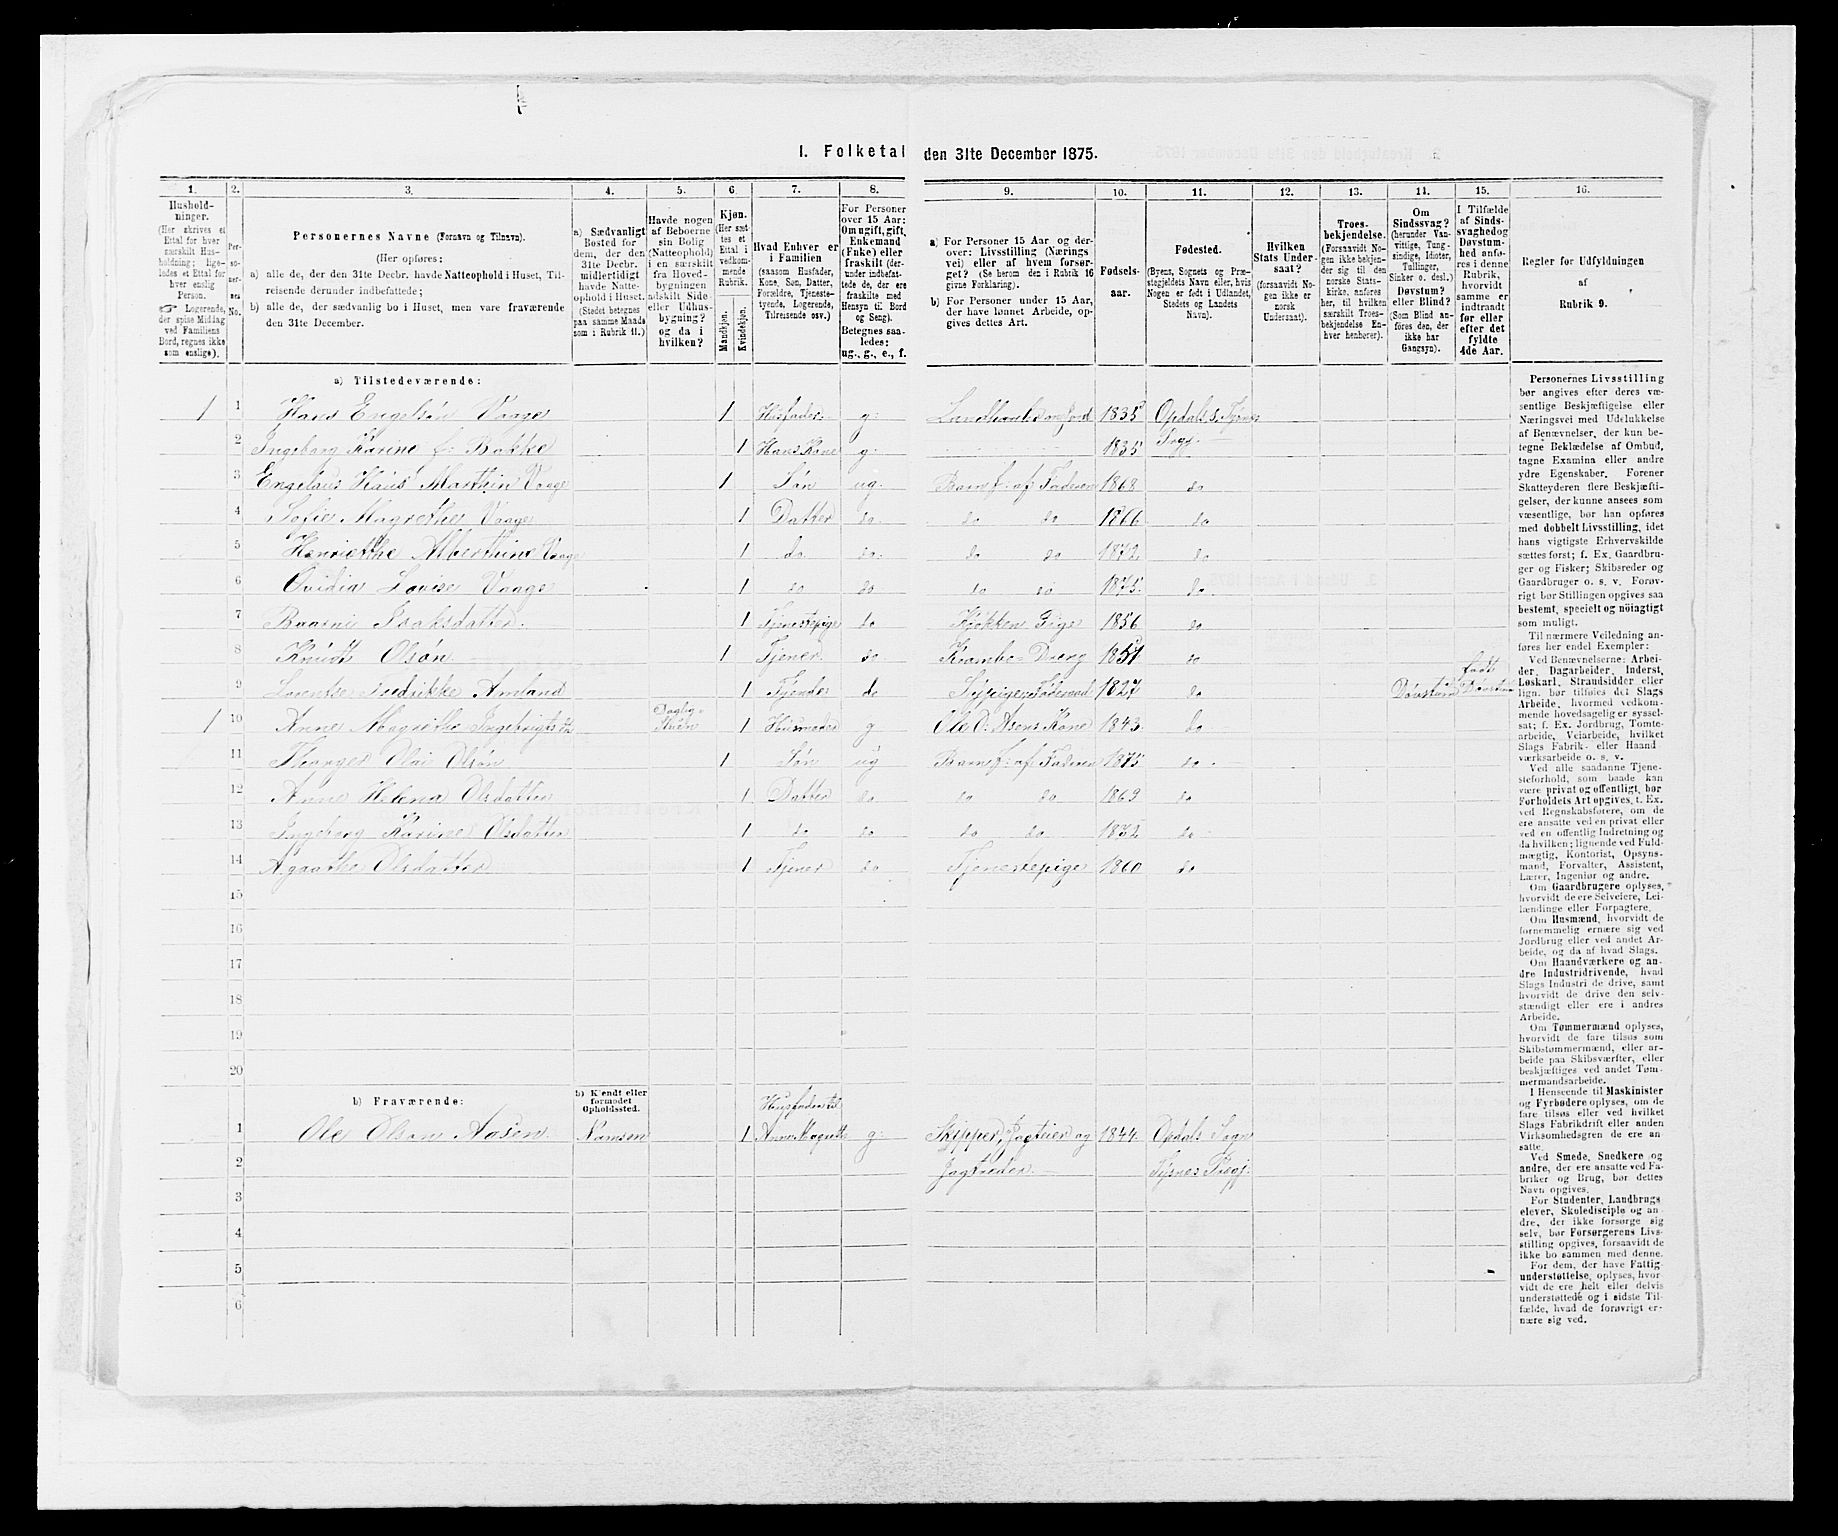 I. Folketal den 31te December 1875.
1. 2. 3. 4. 5. 6. 7. 8. 9. 10. 11. 12. 13. 14. 15. 16.
Hushold-
ninger.
(Her skrives et
Ettal for hver
særskilt Hus-
holdning; lige-
ledes et Ettal for
hver enslig
Person.
Logerende,
der spise Middag
ved Familiens
Bord, regnes ikke
som enslige).
Per-
so-
ner-
nes
No.
Personernes Navne (Fornavn og Tilnavn).
(Her opføres:
a) alle de, der den 31te Decbr. havde Natteophold i Huset, Til-
reisende derunder indbefattede;
b) alle de, der sædvanlig bo i Huset, men vare fraværende
den 31te December.
a) Sædvanligt
Bosted for
dem, der den
31te Decbr.
midlertidigt
havde Natte-
ophold i Huset.
(Stedet betegnes
paa samme Maade
som i Rubrik 11.)
Havde nogen
af Beboerne
sin Bolig
(Natteophold)
i en særskilt
fra Hoved-
bygningen
adskilt Side-
eller Udhus-
bygning?
og da i
hvilken?
Kjøn.
(Her sæt
tes et
Ettal i
vedkom-
mende
Rubrik.
Mandkjøn.
Kvindekjøn.
Hvad Enhver er
i Familien
(saasom Husfader,
Kone, Søn, Datter,
Forældre, Tjeneste-
tyende, Logerende,
Tilreisende osv.)
For Personer
over 15 Aar:
Om ugift, gift,
Enkemand
(Enke) eller
fraskilt (der-
under indbefat-
tede de, der ere
fraskilte med
Hensyn til Bord
og Seng).
Betegnes saa-
ledes:
ug., g., e., f.
a) For Personer 15 Aar og der-
over: Livsstilling (Nærings
vei) eller af hvem forsør-
get? (Se herom den i Rubrik 16
givne Forklaring).
b) For Personer under 15 Aar,
der have lønnet Arbeide, op-
gives dettes Art.
Fødsels-
aar.
Fødested.
(Byens, Sognets og Præ-
stegjeldets Navn eller, hvis
Nogen er født i Udlandet,
Stedets og Landets
Navn).
Hvilken
Stats Under-
saat?
(forsaavidt No-
gen ikke er
norsk
Undersaat).
Troes-
bekjendelse.
(Forsaavidt No-
gen ikke bekjen-
der sig til den
norske Stats-
kirke, anføres
her, til hvilken
særskilt Troes-
bekjendelse En-
hver henhører).
Om
Sindssvag?
(herunder Van-
vittige, Tung-
sindige, Idioter,
Tullinger,
Sinker o. desl.)
Døvstum?
eller Blind?
(Som Blind an-
føres den, der
ikke har
Gangsyn).
I Tilfælde
af Sinds-
svaghed og
Døvstum-
hed anfø-
res i denne
Rubrik,
hvorvidt
samme er
indtrandt
før eller
efter det
fyldte
4de Aar.
Regler for Udfyldningen
af
Rubrik 9.
a) Tilstedeværende:
1 1 Hans Engelsøn Vaage 1 Husfader g: 1835 Opdals S. Tysnes
2 Ingeborg Karine f: Bakke 1 Hans Kone g: 1835 Prgj.
3 Engelaus Hans Marthin Vaage 1 Søn ug. Barn f: af Faderen 1868 do
4 Sofie Magrethe Vaage 1 Datter do. do do 1866 do
5 Henriethe Alberthine Vaage 1 do do. do do 1872 do
6 Ovidia Lovise Vaage 1 do do do do 1875. do
7 Isaksdatter. 1 Tjenestepige do Kjøkken Pige 1856 do
8 Knudt Olsøn 1 Tjener do Krambo-Dreng 1857 do
9 Fredrikke Amland 1 do 1827 do Døvstum født Døvstum
1 10 Anne Magrethe Ingebrigtsdtr Daglig-Stuen 1 Husmoder g Ole O: Asens Kone 1843. do
11 Olai Olsøn 1 Søn ug Barn f: af Faderen 1875 do
12 Anne Helena Olsdatter 1 Datter do do do 1869 do
13 Ingeborg Karine Olsdatter 1 do do do do 1872 do
14 Agaathe Olsdatter 1 Tjener do Tjenestepige 1860 do
15
16
17
18
19
20
b) Fraværende:
b) Kjendt eller
formodet
Opholdssted.
Husfader til
1 Ole Olsøn Aasen. Namsen 1 Anne Magrethe g: Skipper, Jagteier og 1844. Opdals Sogn
2 Jagtreder. Tysnes Prgj.
3
4
5
6
Personernes Livsstilling
bør angives efter deres væ-
sentlige Beskjæftigelse eller
Næringsvei med Udelukkelse
af Benævnelser, der kun be-
tegne Beklædelse af Ombud,
tagne Examina eller andre
ydre Egenskaber. Forener
Skatteyderen flere Beskjæfti-
gelser, der kunne ansees som
væsentlige, bør han opføres
med dobbelt Livsstilling, idet
hans vigtigste Erhvervskilde
sættes først; f. Ex. Gaardbru-
ger og Fisker; Skibsreder og
Gaardbruger o. s. v. Forøv-
rigt bør Stillingen opgives saa
bestemt, specielt og nöiagtigt
som muligt.
Til nærmere Veiledning an-
føres her endel Exempler:
Ved Benævnelserne: Arbei-
der, Dagarbeider, Inderst,
Løskarl, Strandsidder eller
lign. bør tilføies det Slags
Arbeide, hvormed vedkom-
mende hovedsagelig er syssel-
sat; f. Ex. Jordbrug, Tomte-
arbeide, Veiarbeide, hvilket
Slags Fabrik- eller Haand
værksarbeide o. s. v.
Ved alle saadanne Tjene-
steforhold, som baade kan
være privat og offentligt, bør
Forholdets Art opgives, t. Ex.
ved Regnskabsførere, om de
ere ansatte ved en privat eller
ved en offentlig Indretning og
da hvilken; lignende ved Fuld-
mægtig, Kontorist, Opsyns-
mand, Forvalter, Assistent,
Lærer, Ingeniør og andre.
Om Gaardbrugere oplyses,
hvorvidt de ere Selveiere, Lei-
lændinge eller Forpagtere.
Om Husmænd, hvorvidt de
fornemmelig ernære sig ved
Jordbrug eller ved andet Ar-
beide, og da af hvad Slags.
Om Haandværkere og an-
dre Industridrivende, hvad
Slags Industri de drive, samt
hvorvidt de drive den selv-
stændigt eller ere i andres
Arbeide.
Om Tømmermænd oplyses,
hvorvidt de fare tilsøs som
Skibstømmermænd, eller ar-
beide paa Skibsværfter, eller
beskjæftiges ved andet Tøm-
mermandsarbeide.
I Henseende til Maskinister
og Fyrbødere oplyses, om de
fare tilsøs eller ved hvilket
Slags Fabrikdrift eller anden
Virksomhedsgren de ere an-
satte.
Ved Smede, Snedkere og
andre, der ere ansatte ved Fa-
briker og Brug, bør dettes
Navn opgives.
For Studenter, Landbrugs
elever, Skoledisciple og an-
dre, der ikke forsørge sig
selv, bør Forsørgerens Livs-
stilling opgives, forsaavidt de
ikke bo sammen med denne.
For dem, der have Fattig-
understøttelse, oplyses, hvor-
vidt de ere helt eller delvis
understøttede og i sidste Til-
fælde, hvad de forøvrigt er-
nære sig ved.